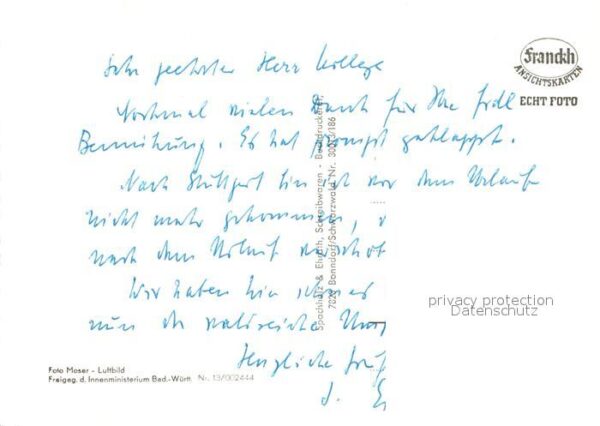 Sehr geehrter Herr Kollege
Nochmal vielen Dank für Ihre frdl
Bemühung. Es hat prompt geklappt.
Nach Stuttgart bin ich vor dem Urlaub
nicht mehr gekommen,
nach dem Urlaub
Wir haben hier
nun die waldreiche Umg
Herzliche Grüß
Franckh
ANSICHTSKARTEN
ECHT FOTO
Spachholz & Ehrath, Schreibwaren - Buchdruckerei,
7823 Bonndorf/Schwarzwald Nr.
privacy protection
Datenschutz
Foto Moser - Luftbild
Freigeg. d. Innenministerium Bad.-Württ. Nr. 13/002444